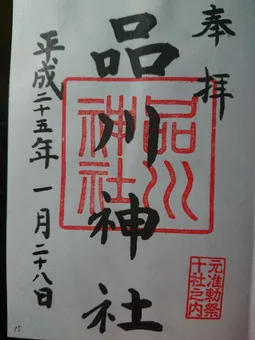 奉拝
品川神社
品川神社
元准勅祭
十社之内
平成二十五年一月二十八日
15